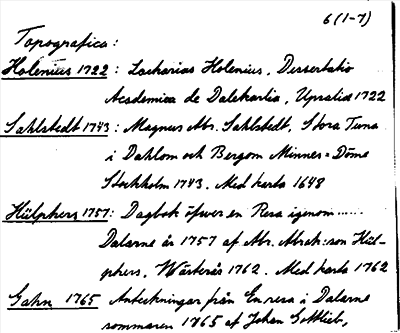 6(1-7)
Topografica:
Holenius 1722: Zacharias Holenius, Dissertatio
Academica de Dalekarlia, Upsalia 1722
Sahlstedt 1743: Magnus Abr. Sahlstedt, Stora Tuna
i Dahlom och Bergom Minnes-Döme
Stockholm 1743. Med karta 1648
Hülphers 1757: Dagbok öfwer en Resa igenom......
Dalarne år 1757 af Abr. Abrah:son Hül-
phers, Wästerås 1762. Med karta 1762
Gahn 1765 Anteckningar från En resa i Dalarne
sommaren 1765 af Johan Gottlieb,